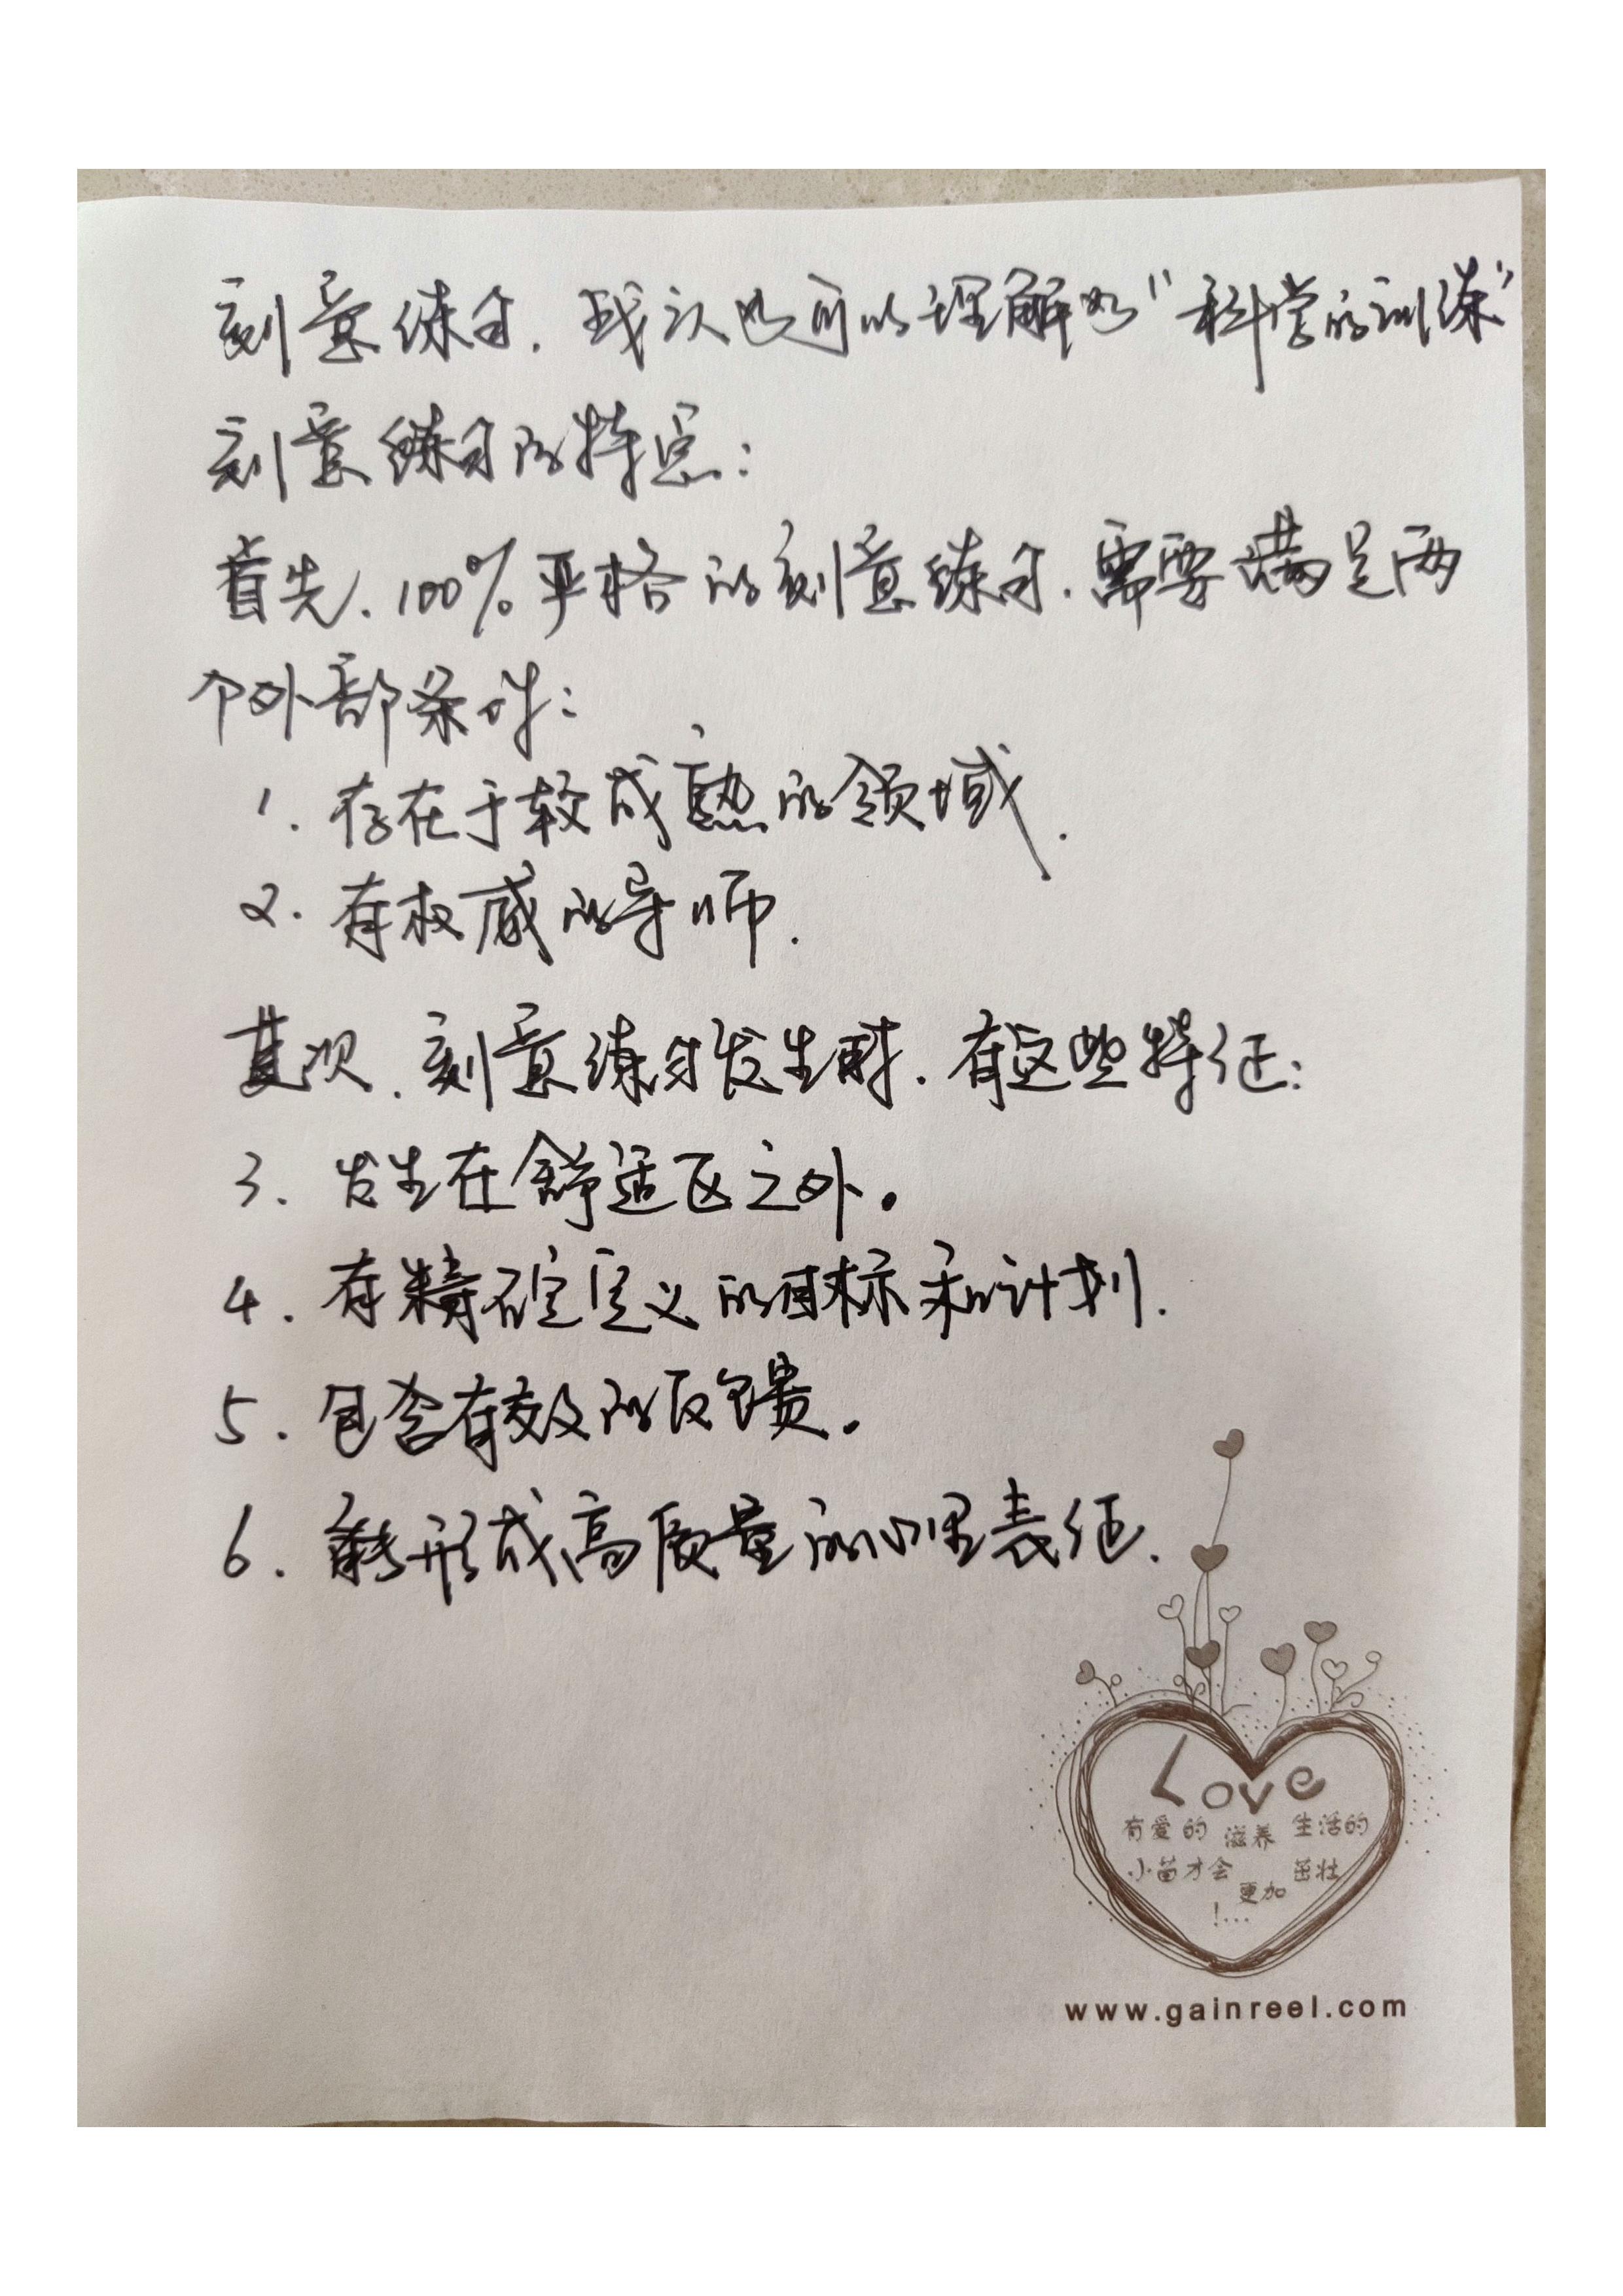 刻意练习，我认为可以理解为"科学的训练"
刻意练习的特点：
首先，100%严格的刻意练习，需要满足两
个外部条件：
1. 存在于较成熟的领域.
2. 有权威的导师.
其次，刻意练习发生时，有这些特征：
3. 发生在舒适区之外。
4. 有精确定义的目标和计划.
5. 包含有效的反馈。
6. 能形成高质量的心理表征.
Love
有爱的 滋养 生活的
小苗才会 更加 茁壮
!...
www.gainreel.com